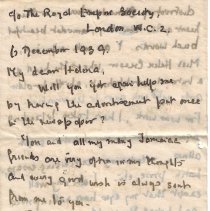 c/o The Royal Empire Society
London, W.C.2.
6 December 1939.
My dear Helena,
Will you yet again help me
by having the advertisement put once
in the newspaper?
You and all my many Jamaica
friends are very often in my thoughts
and every good wish is always sent
from me to you.